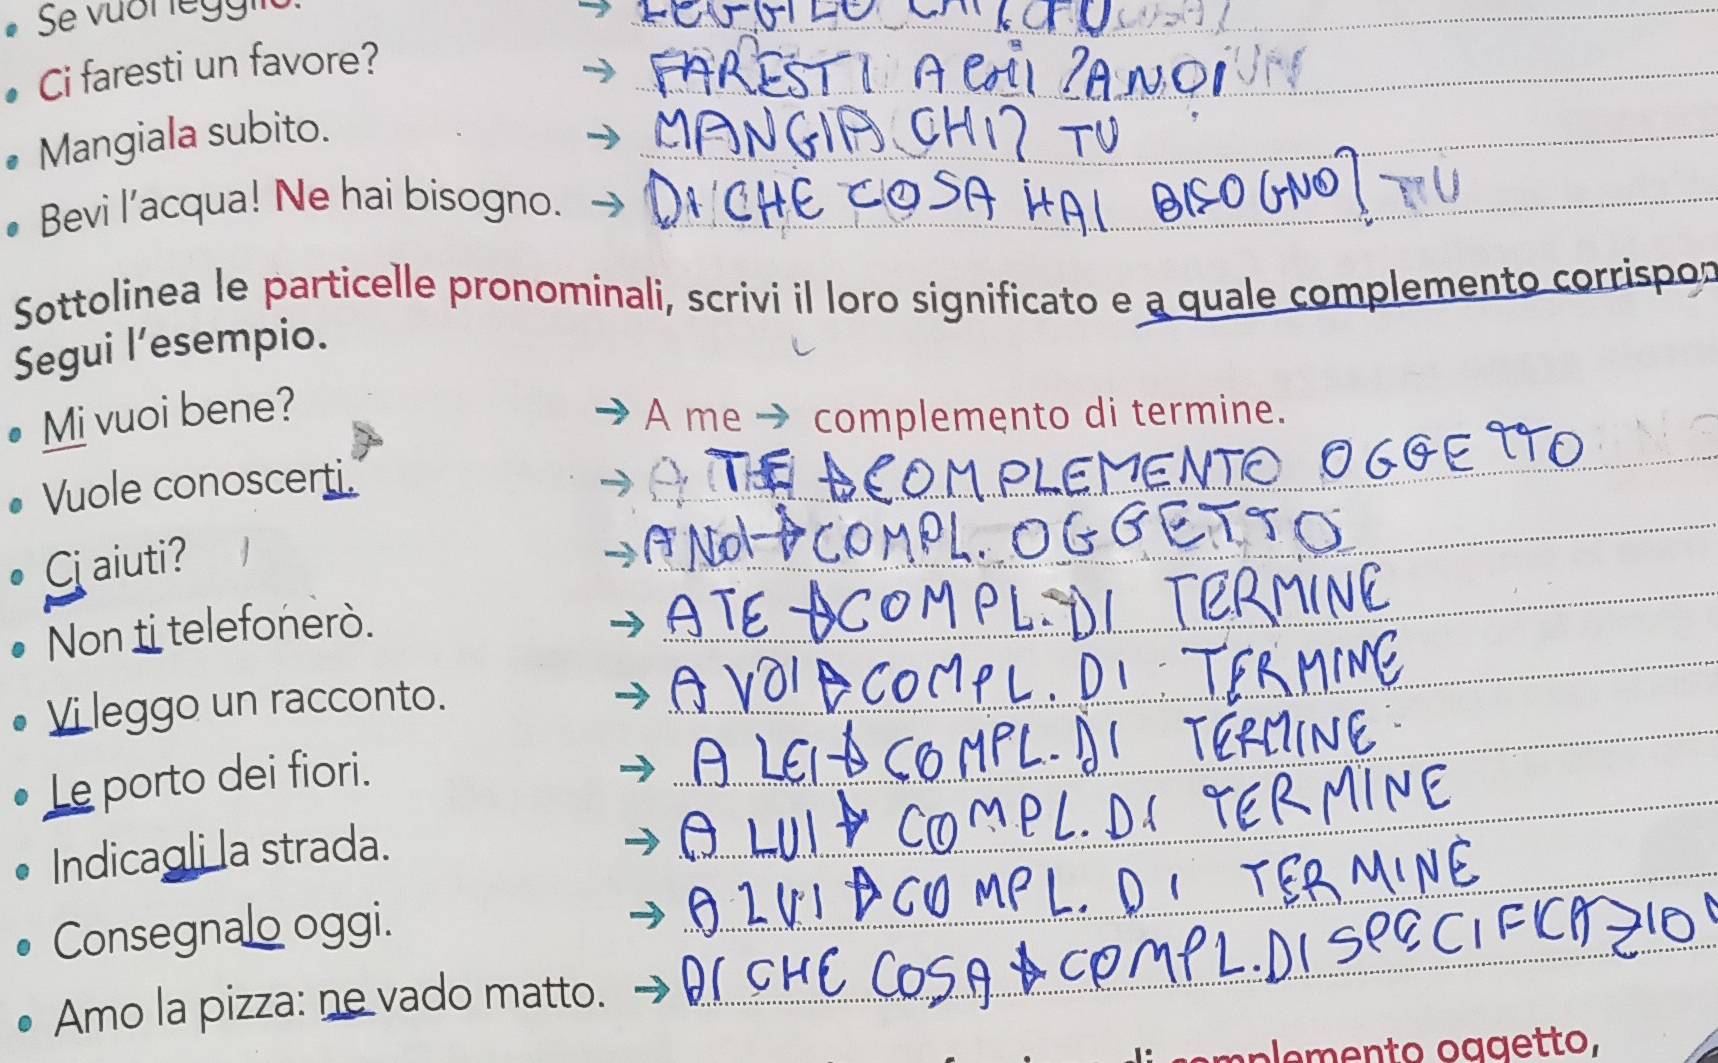 Se vuoi → LEGGILO
Ci faresti un favore? → FARESTI A ? A NOI
Mangiala subito. → MANGIA CHI? TU
Bevi l'acqua! Ne hai bisogno. → DI CHE COSA HAI BISOGNO? TU
Sottolinea le particelle pronominali, scrivi il loro significato e a quale complemento corrispon
Segui l'esempio.
Mi vuoi bene? → A me → complemento di termine.
Vuole conoscerti. → A TE → COMPLEMENTO OGGETTO
Ci aiuti? → A NOI → COMPL. OGGETTO
Non ti telefonerò. → A TE → COMPL. DI TERMINE
Vi leggo un racconto. → A VOI → COMPL. DI TERMINE
Le porto dei fiori. → A LEI → COMPL. DI TERMINE
Indicagli la strada. → A LUI → COMPL. DI TERMINE
Consegnalo oggi. → A LUI → COMPL. DI TERMINE
Amo la pizza: ne vado matto. → DI CHE COSA → COMPL. DI SPECIFICAZION
complemento oggetto,